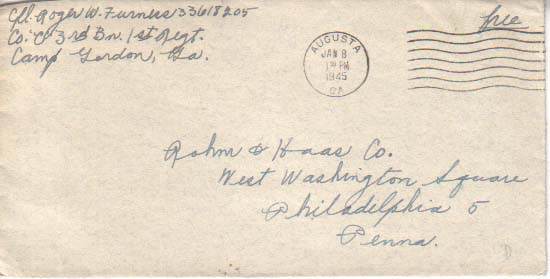 Cpl. Roger W. Furness 33618205
Co. "C" 3rd Bn. 1st Regt.
Camp Gordon, Ga.
free
AUGUSTA
JAN 8
1945
GA
Rohm & Haas Co.
West Washington Square
Philadelphia 5
Penna.
D